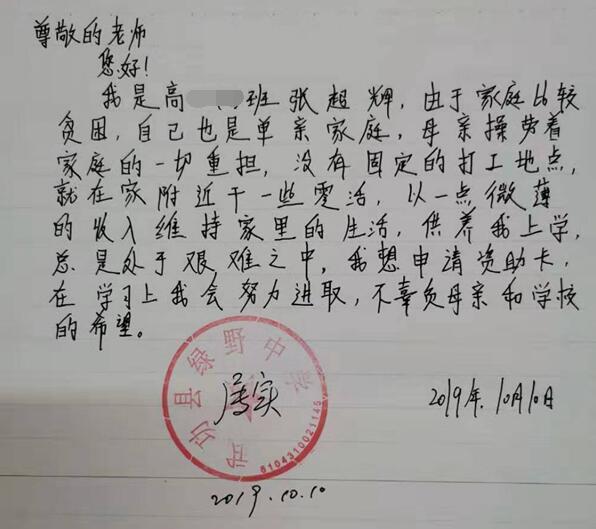 尊敬的老师
您好!
我是高 班张超辉,由于家庭比较
贫困,自己也是单亲家庭,母亲操劳着
家庭的一切重担,没有固定的打工地点,
就在家附近干一些零活,以一点微薄
的收入维持家里的生活,供养我上学,
总是处于艰难之中,我想申请资助卡,
在学习上我会努力进取,不辜负母亲和学校
的希望。
武功县绿野中学
属实
2019年.10月10日
6104310021145
2019.10.10